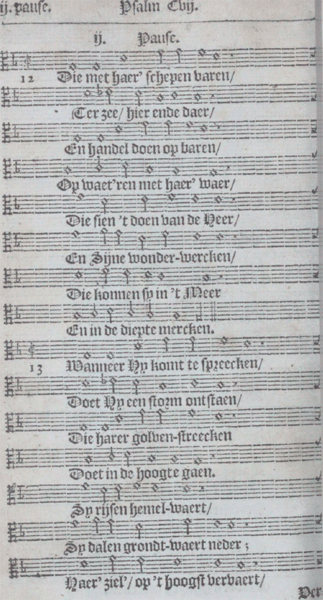 ij. pause. Psalm Cvij.
ij. Pause.
12 Die met haer' schepen varen/
Ter zee/ hier ende daer/
En handel doen op baren/
Op waet'ren met haer' waer/
Die sien 't doen van de Heer/
En Sijne wonder-wercken/
Die konnen sy in 't Meer
En in de diepte mercken.
13 Wanneer Hy komt te spreecken/
Doet Hy een storm ontstaen/
Die harer golven-streecken
Doet in de hoogte gaen.
Sy rijsen hemel-waert/
Sy dalen grondt-waert neder;
Haer' ziel'/ op 't hoogst vervaert/
Ver